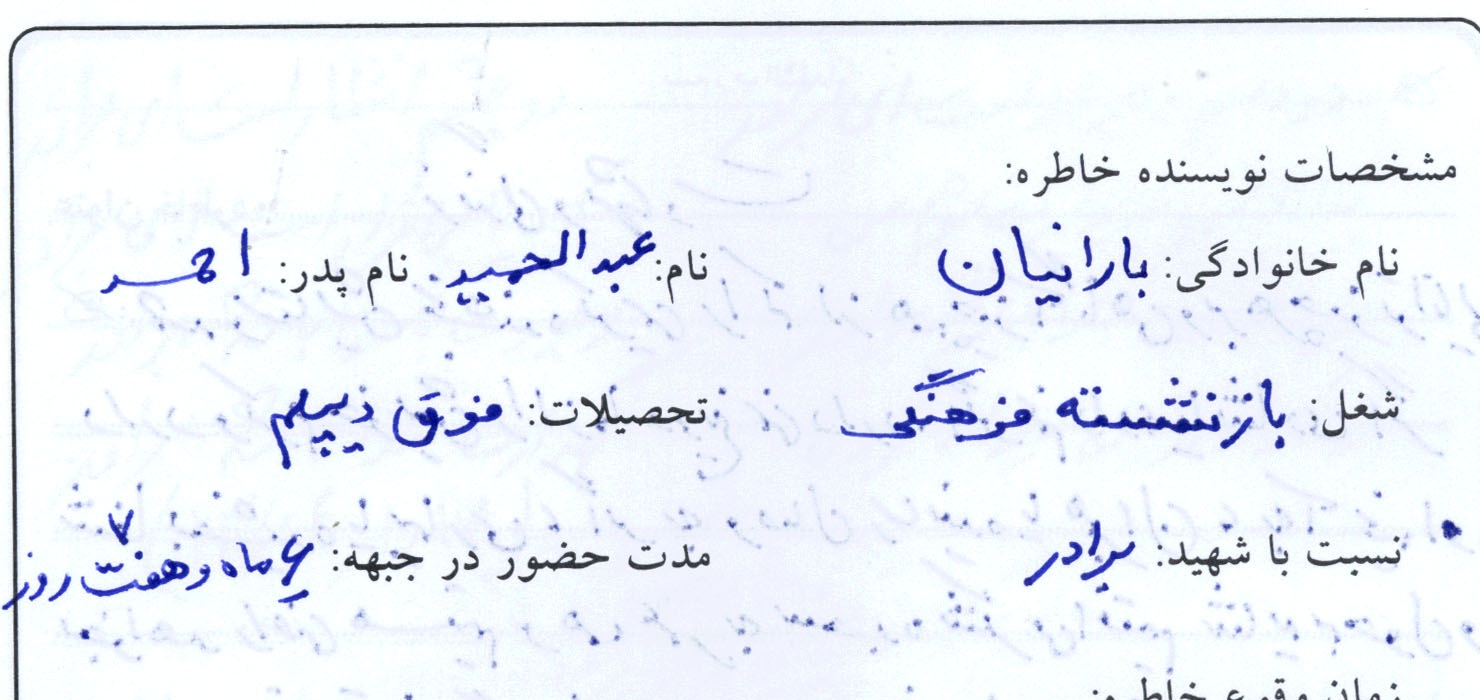 مشخصات نویسنده خاطره:
نام خانوادگی: بارانیان نام: عبدالحمید. نام پدر: احمد
شغل: بازنشسته فرهنگی تحصیلات: فوق دیپلم
نسبت با شهید: برادر مدت حضور در جبهه: ۶ ماه و هفت ۷ روز
زمان وقوع خاطره: